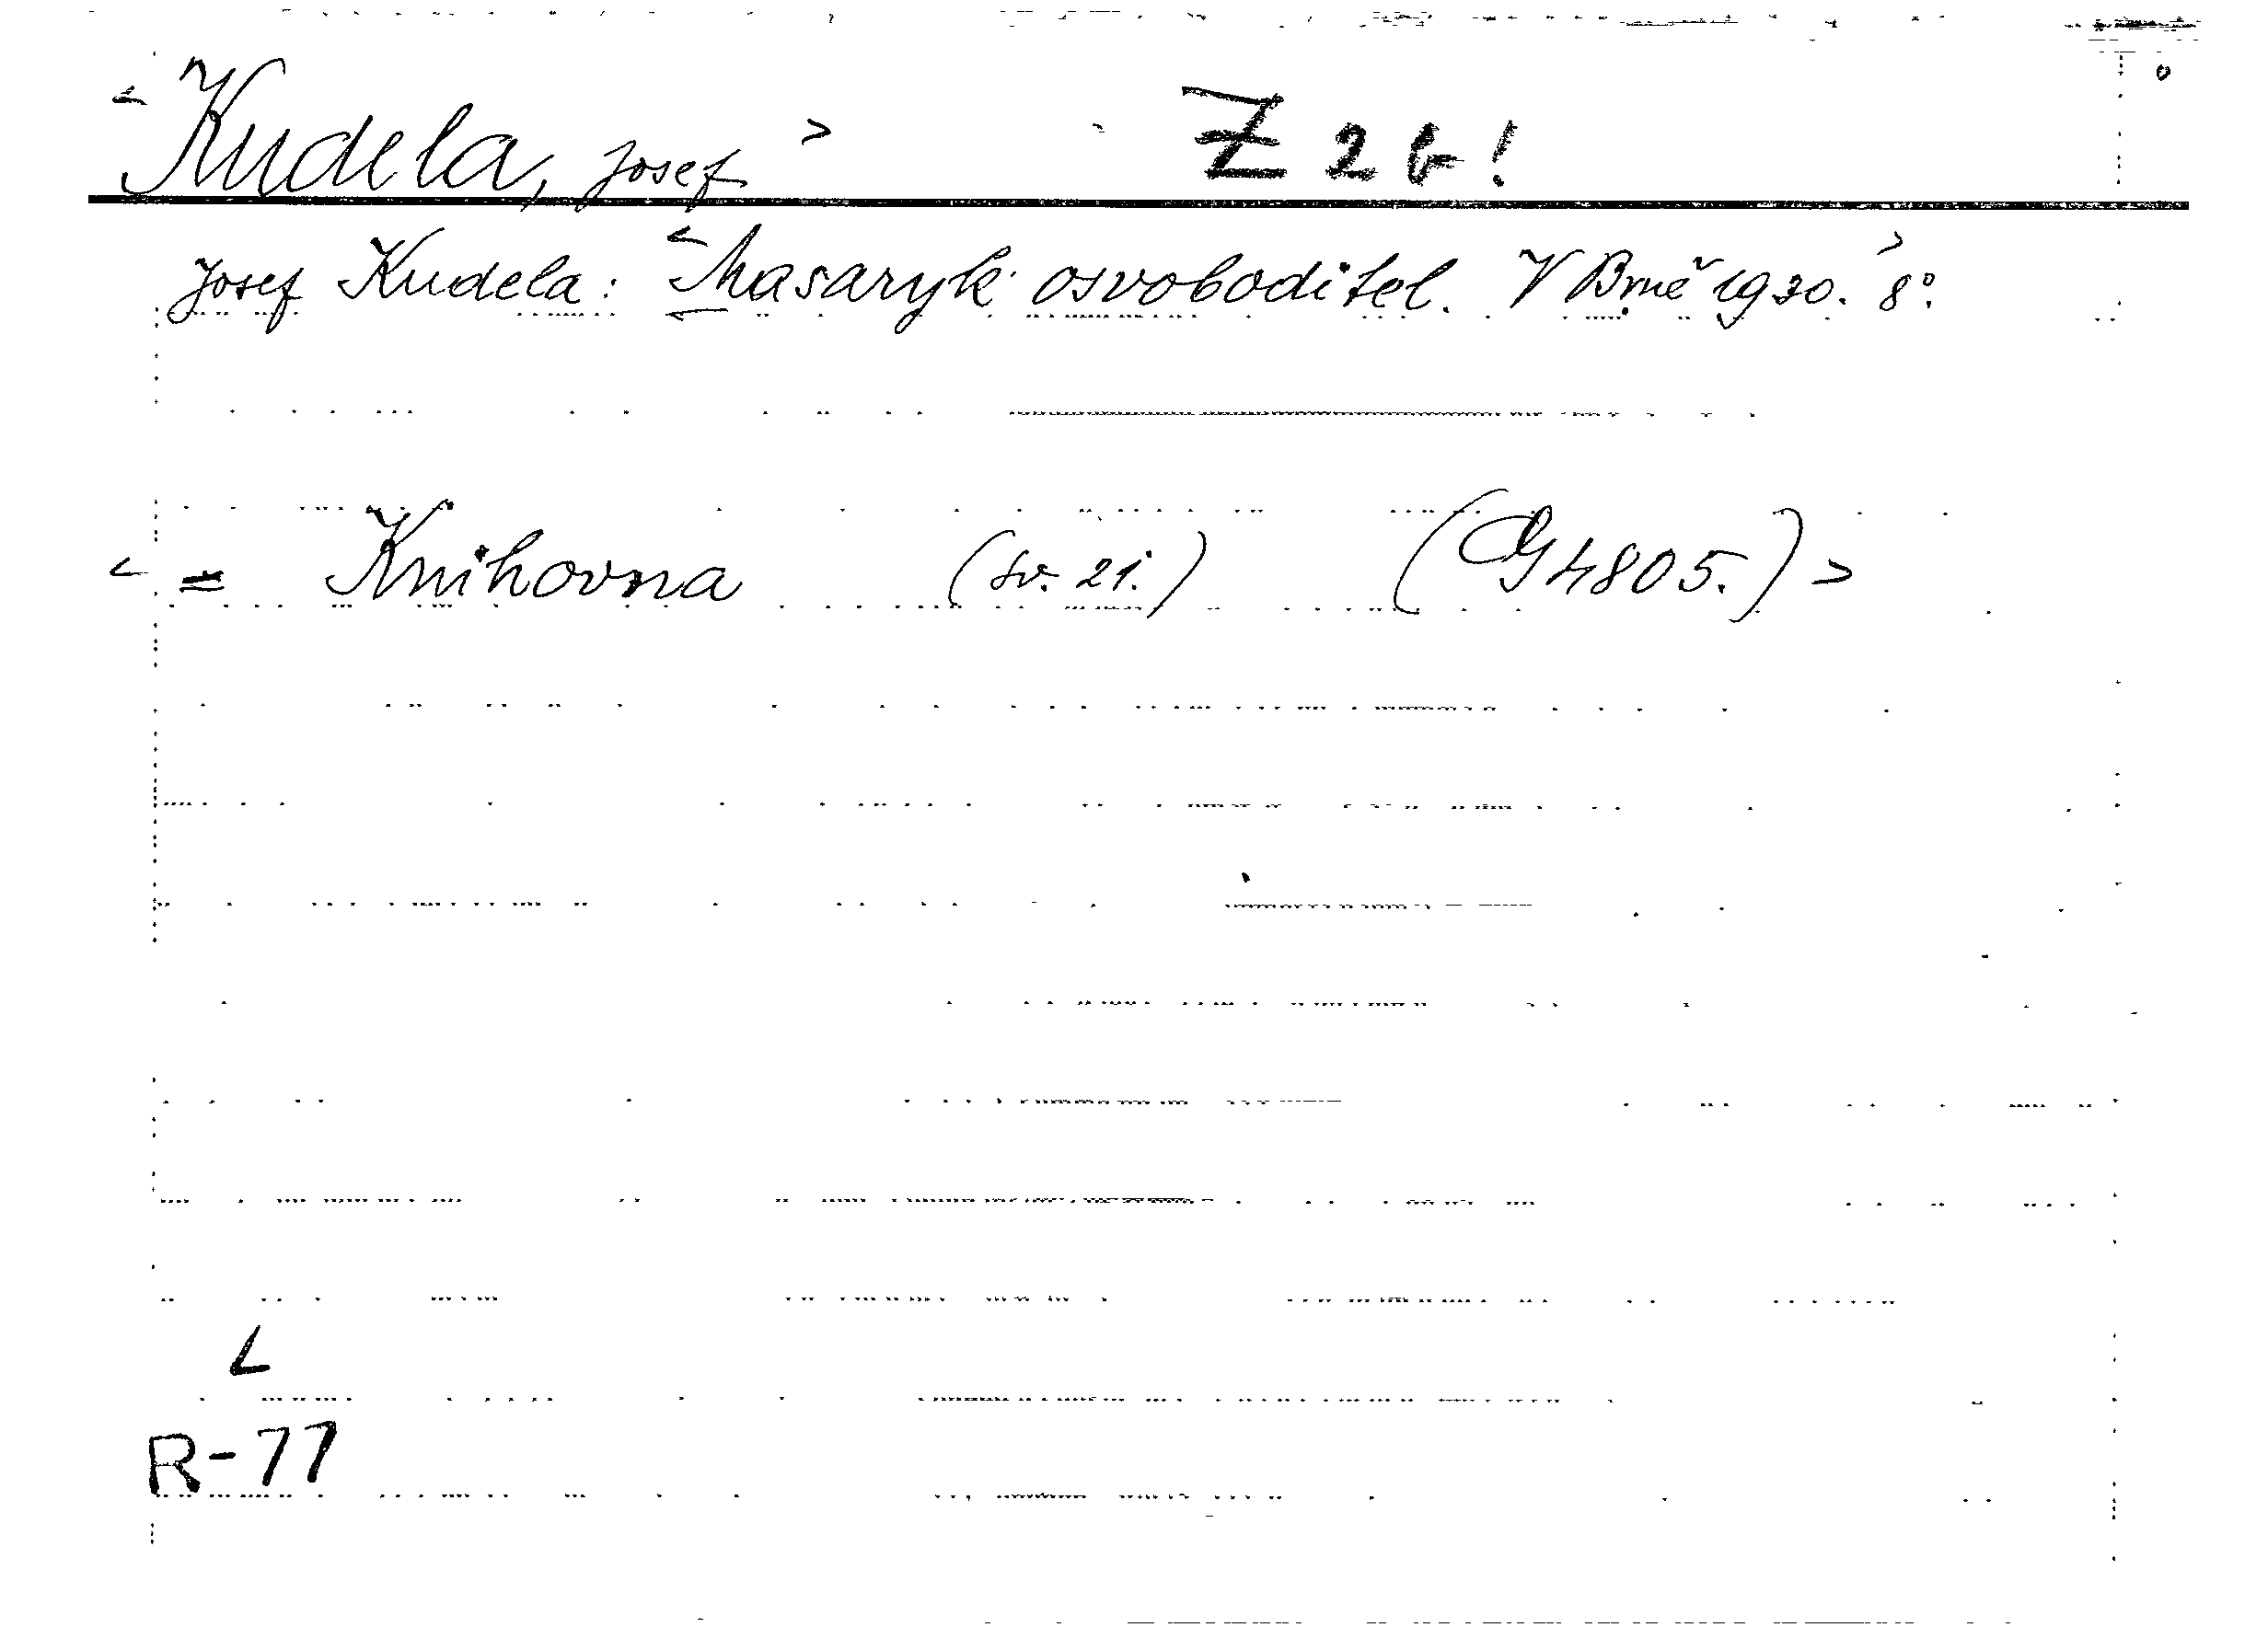 <Kudela, Josef> Z 2 b!
Josef Kudela: <Masaryk osvoboditel. V Brně 1930. 8°.>
<= Knihovna (sv. 21.) (G 4805.)>
<
R-77